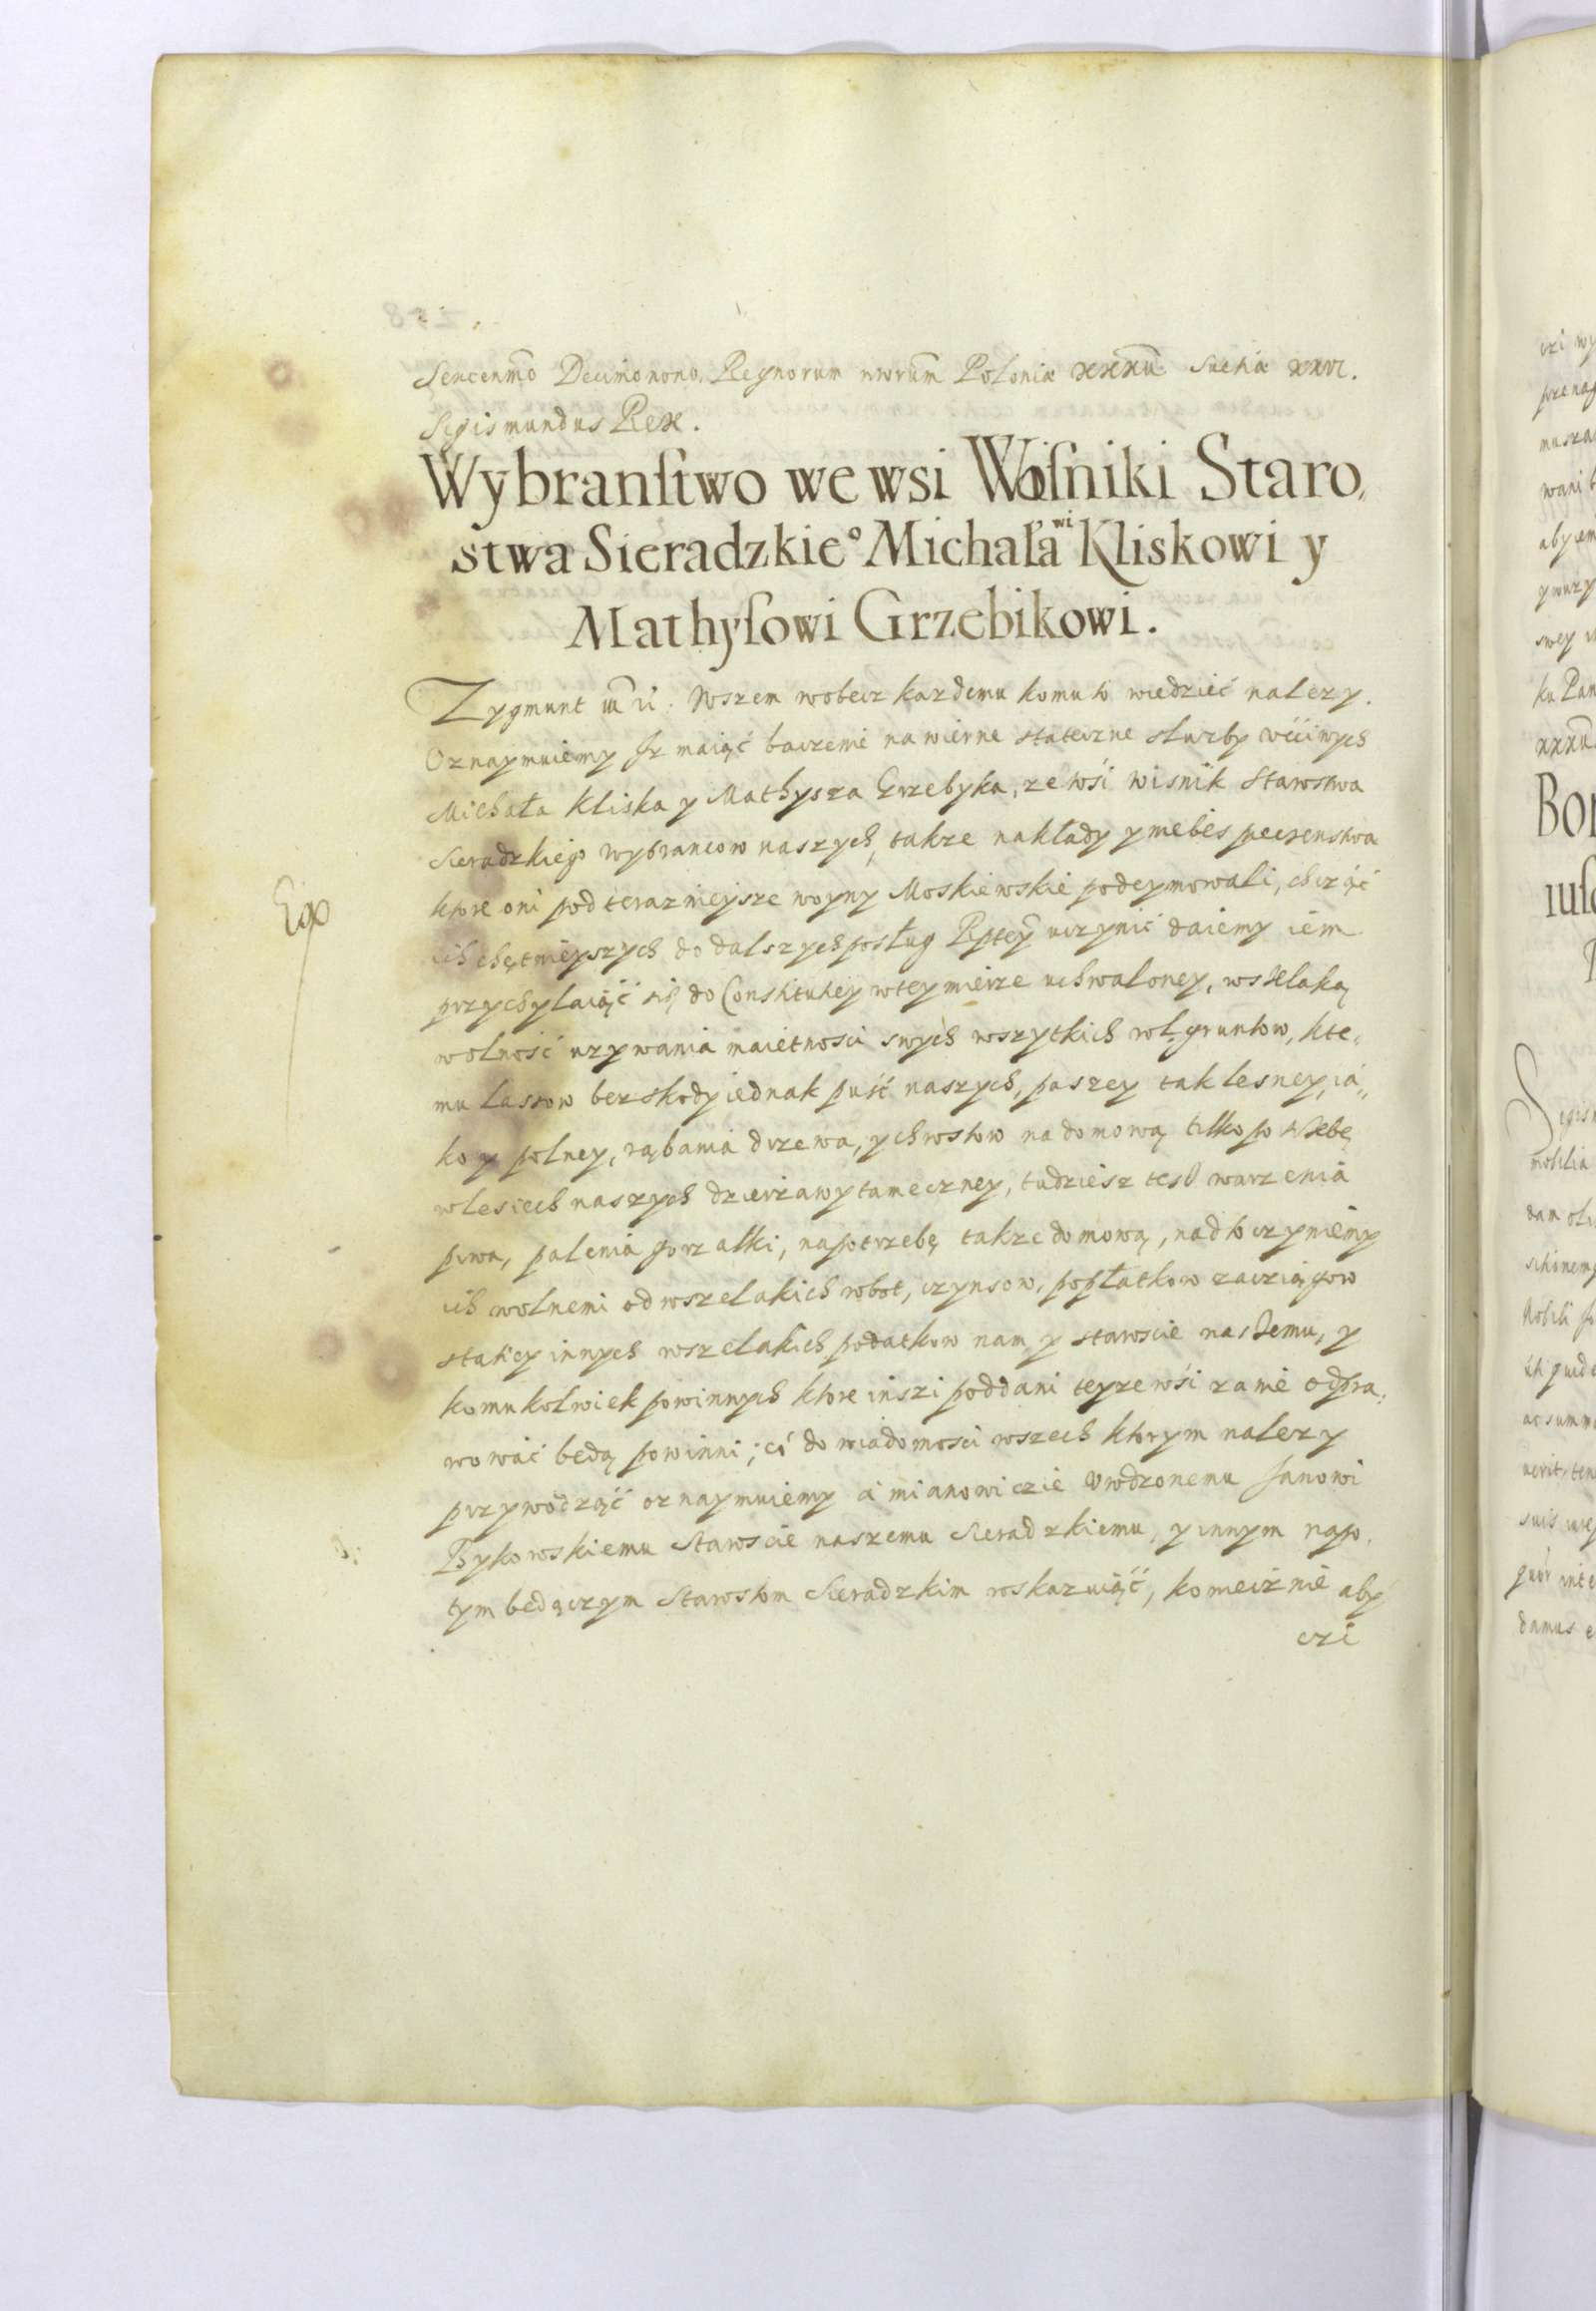 Sexcenmo Decimonono. Regnorum nrorum Poloniæ xxxii Sueciæ xxvi.
Sigismundus Rex.
Wybranſtwo we wsi Woiſniki Staro,
stwa Sieradzkie° Michaławi Kliskowi y
Mathyſowi Grzebikowi.
Zygmunt iii. Wszem wobecz kazdemu komu to wiedzieć nalezy.
Oznaymuiemy Jz maiąć baczenie na wierne stateczne sluzby ućciwych
Michała Kliska y Mathysza Grzebyka, ze wśi wisnik Starostwa
Sieradzkiego wybrancow naszych, takze nakłady y niebespeczenstwa
ktore oni pod terazniejsze woyny Moskiewskie podeymowali, chcząć
ich chętniejszych do dalszych posług Rptey uczynić daiemy iem
przychylaiąć się do Constitutiey w tey mierze uchwaloney, wszelaką
wolność uzywania maietnosci swych wszytkich rol, gruntow, kte,
mu lassow bez skody iednak pusć naszych, paszey tak lesney, iá,,
ko y polney, rąbania drzewa, y chrostow na domową tilko potrzebę
w lesiech naszych dzierżawy tameczney, tudziesz tesz warzenia
piwa, palenia gorzalki, na potrzebę takze domową, nad to czyniemy
ich wolnemi od wszelakich robot, czynsow, popłatkow zacziągow
statiey innych wszelakich podatkow nam y staroscie naszemu, y
komukolwiek powinnych ktore inszi poddani teyze wśi za nie odpra,
wowáć bedą powinni; có do wiadomosci wszech ktorym nalezy
przywodząć oznaymuiemy a mianowiczie Urodzonemu Janowi
Bykowskiemu Staroscie naszemu Sieradzkiemu, y innym napo,
tym będączym Starostom Sieradzkim roskazuiąć, konieczńie aby
czi
Exp